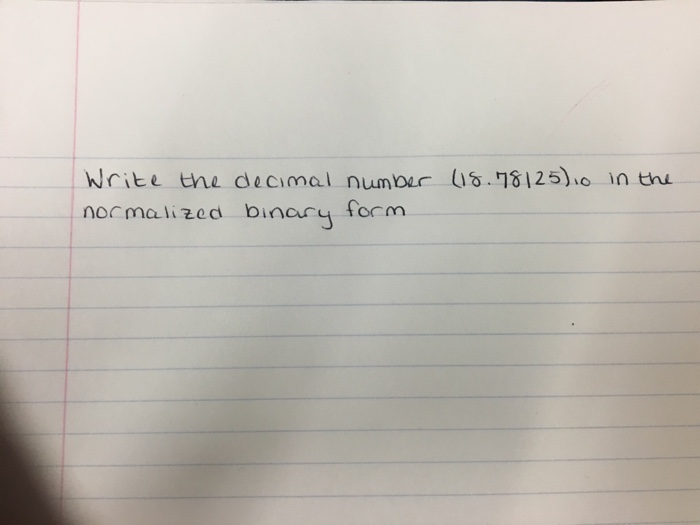 Write the decimal number (18.78125)₁₀ in the
normalized binary form